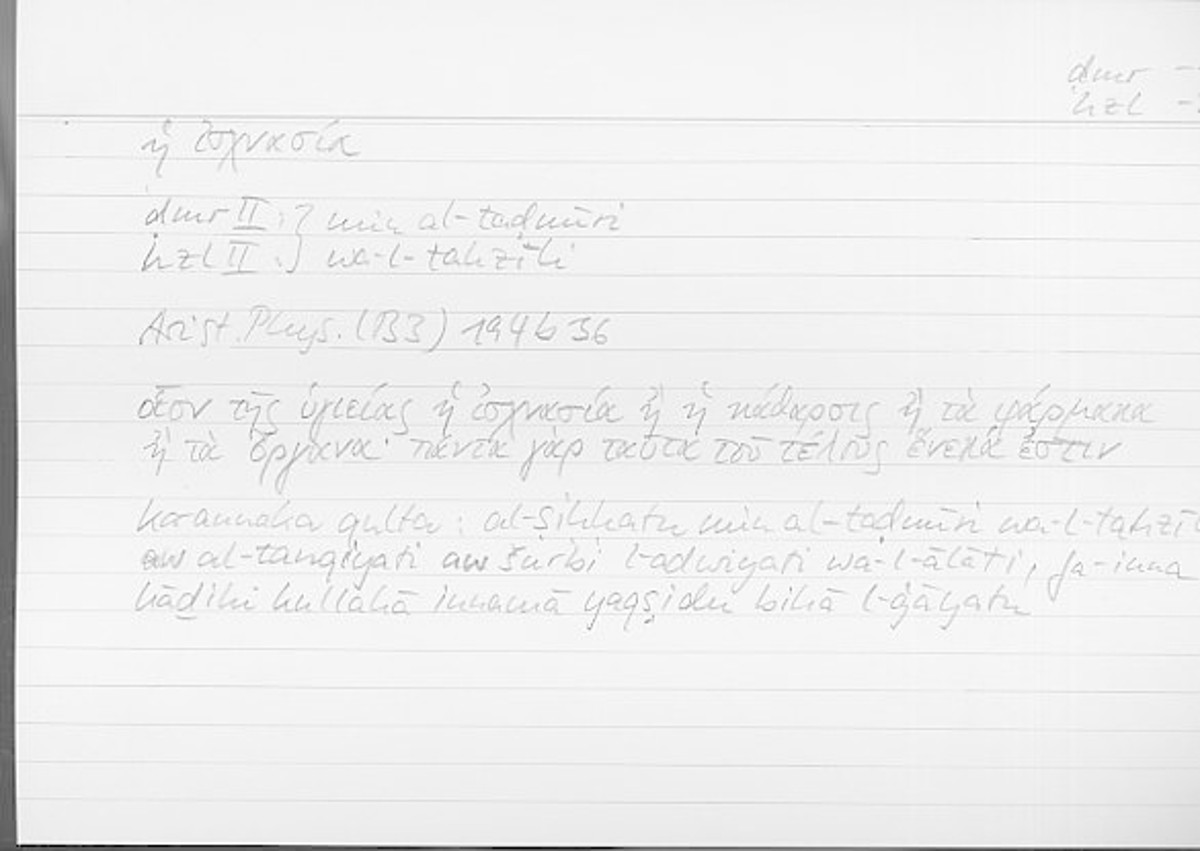 ḍmr
hzl
ἡ ἰσχνασία
ḍmr II : } min al-taḍmīri
hzl II : } wa-l-tahzīli
Arist. Phys. (B3) 194b36
οἷον τῆς ὑγιείας ἡ ἰσχνασία ἢ ἡ κάθαρσις ἢ τὰ φάρμακα
ἢ τὰ ὄργανα· πάντα γὰρ ταῦτα τοῦ τέλους ἕνεκά ἐστιν
ka-annaka qulta : al-ṣiḥḥatu min al-taḍmīri wa-l-tahzī
aw al-tanqiyati aw šurbi l-adwiyati wa-l-ālāti, fa-inna
hāḏihi kullahā innamā yaqṣidu bihā l-ġāyatu